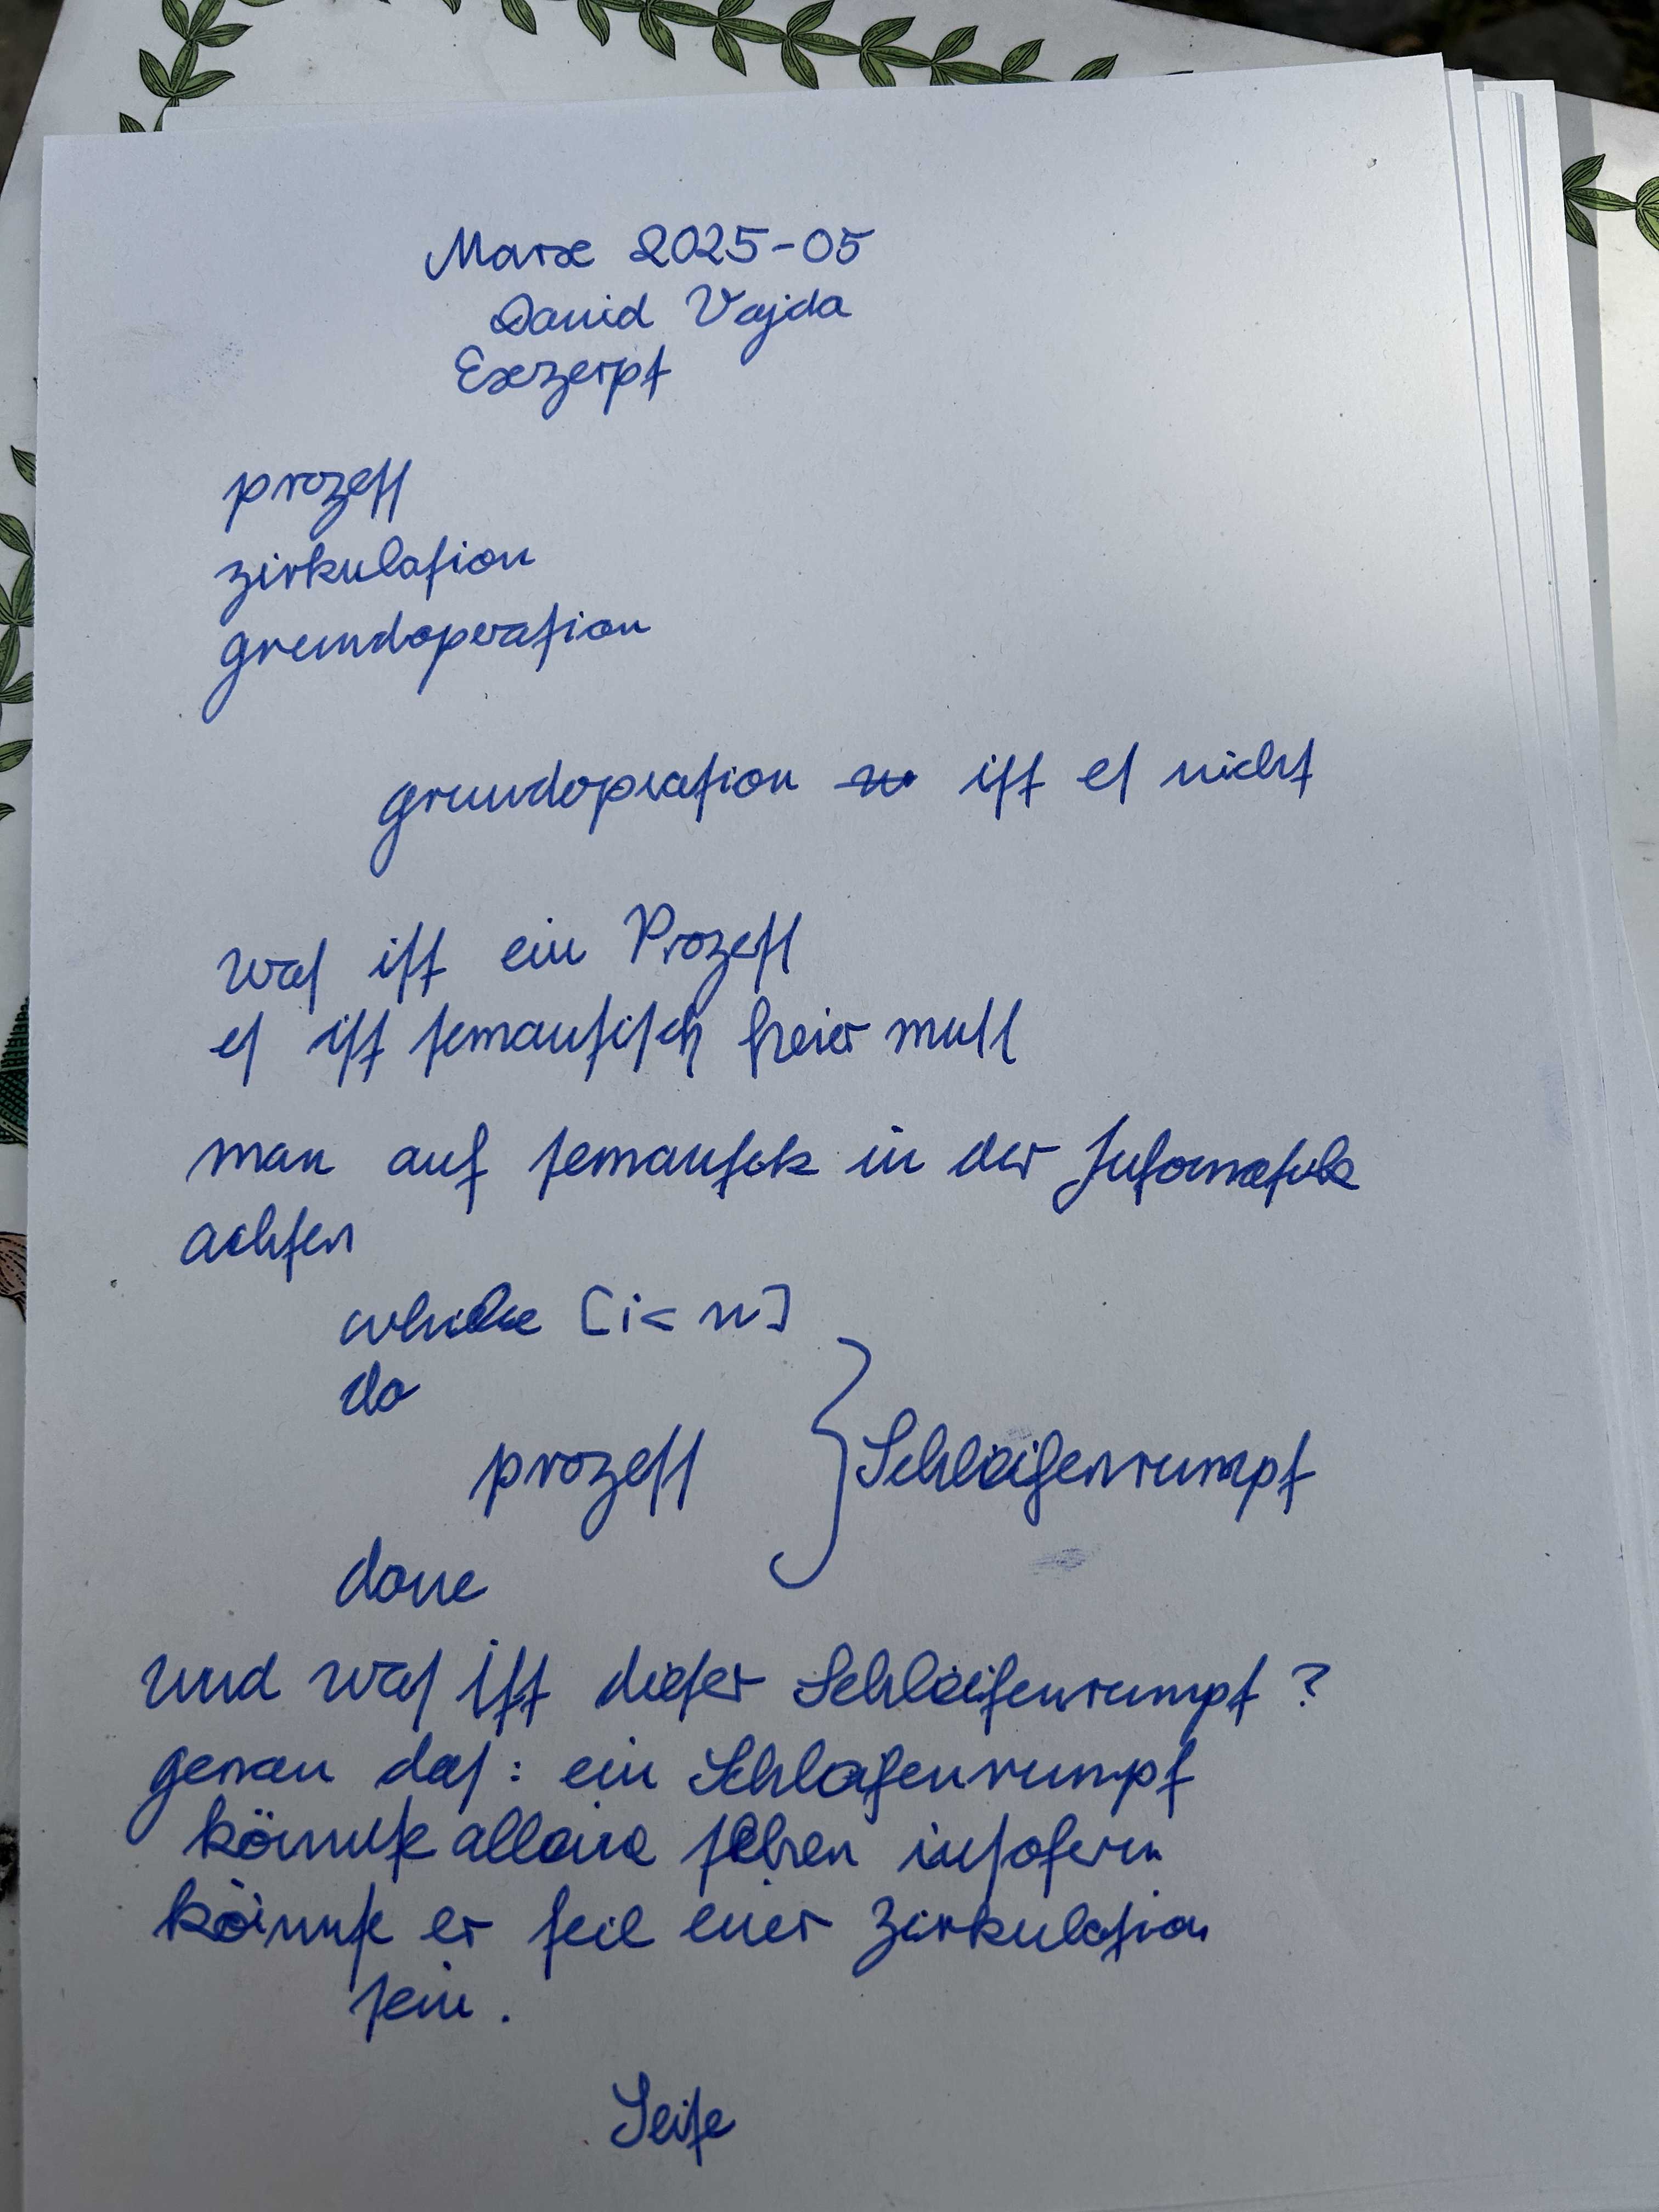 Marx 2025-05
David Vajda
Exzerpt
prozeſſ
zirkulation
grundoperation
grundopration iſt eſ nicht
waſ iſt ein Prozeſſ
eſ iſt ſemantiſch freier muſſ
man auf ſemantik in der Informatik
achten
while [i < n]
do
prozeſſ
Schleifenrumpf
done
und waſ iſt dieſer Schleifenrumpf ?
genau daſ : ein Schleifenrumpf
könnte alleine ſtehen inſofern
könnte er teil einer Zirkulation
ſein .
Seite